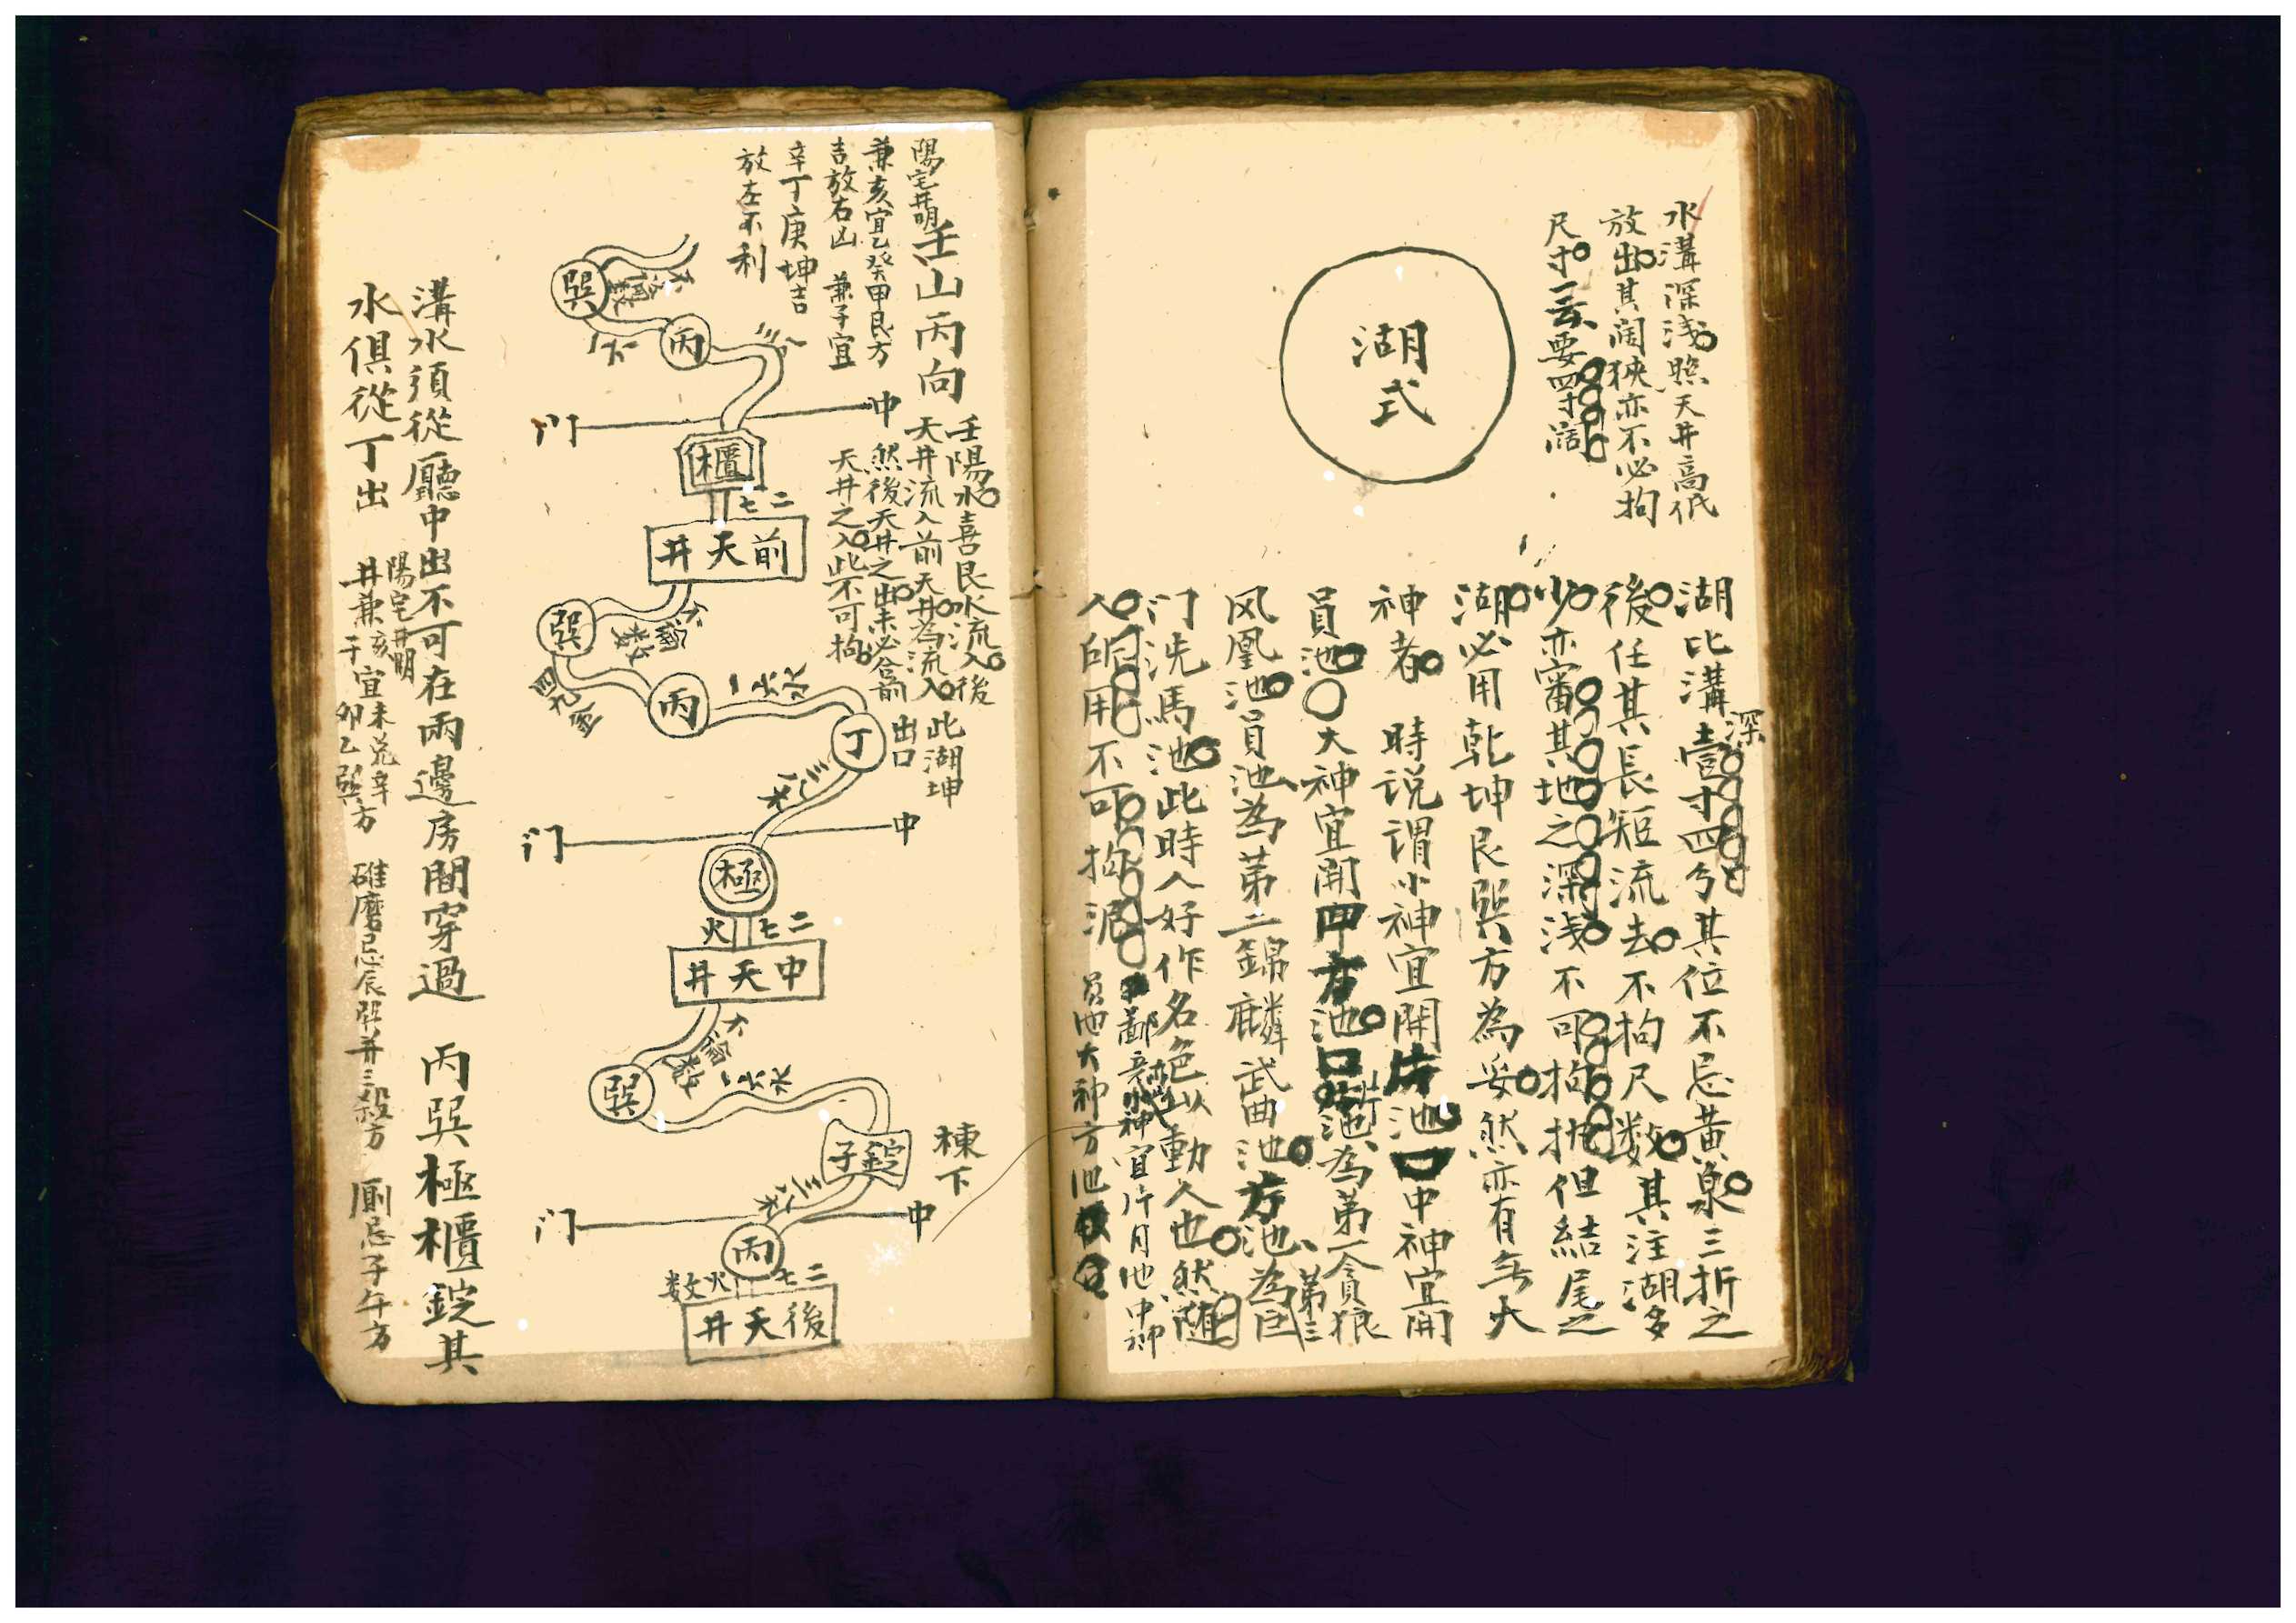 水溝深浅照天井高低
放出其闊狹亦不必拘
尺寸云要四寸濶
湖式
湖比溝深壹寸四分其位不忌黃泉三折之
後任其長短流去不拘尺数其注湖多
少亦審其地之深浅不可拘拋但結尾之
湖必用乾坤艮巽方為妥然亦有無大
神者 時説謂小神宜開片池中神宜開
員池〇大神宜開方池口 池為第一貪狼
风凰池員池為第二錦麟武曲池方池為第三巨
门洗馬池此時人好作名色以動人也然随
人所用不可拘泥
鄙意小神宜片月池中神
員池大神方池
陽宅井明
壬山丙向
兼亥宜乙癸甲艮方
吉放右凶 兼子宜
辛丁庚坤吉
放左不利
壬陽水喜艮水流入後
天井流入前天井為流入
然後天井之出未必合前
天井之入此不可拘
此湖坤
出口
巽
丙
中
门
櫃
二七
前天井
巽
丙
丁
中
门
極
二七火
中天井
巽
錠子
棟下
中
门
丙
二七火数
後天井
溝水須從廳中出不可在兩邊房間穿過 丙巽極櫃錠其
水俱從丁出
陽宅井明
井兼亥宜未 辛
子 卯乙巽方
碓磨忌辰巽并三殺方 厠忌子午方